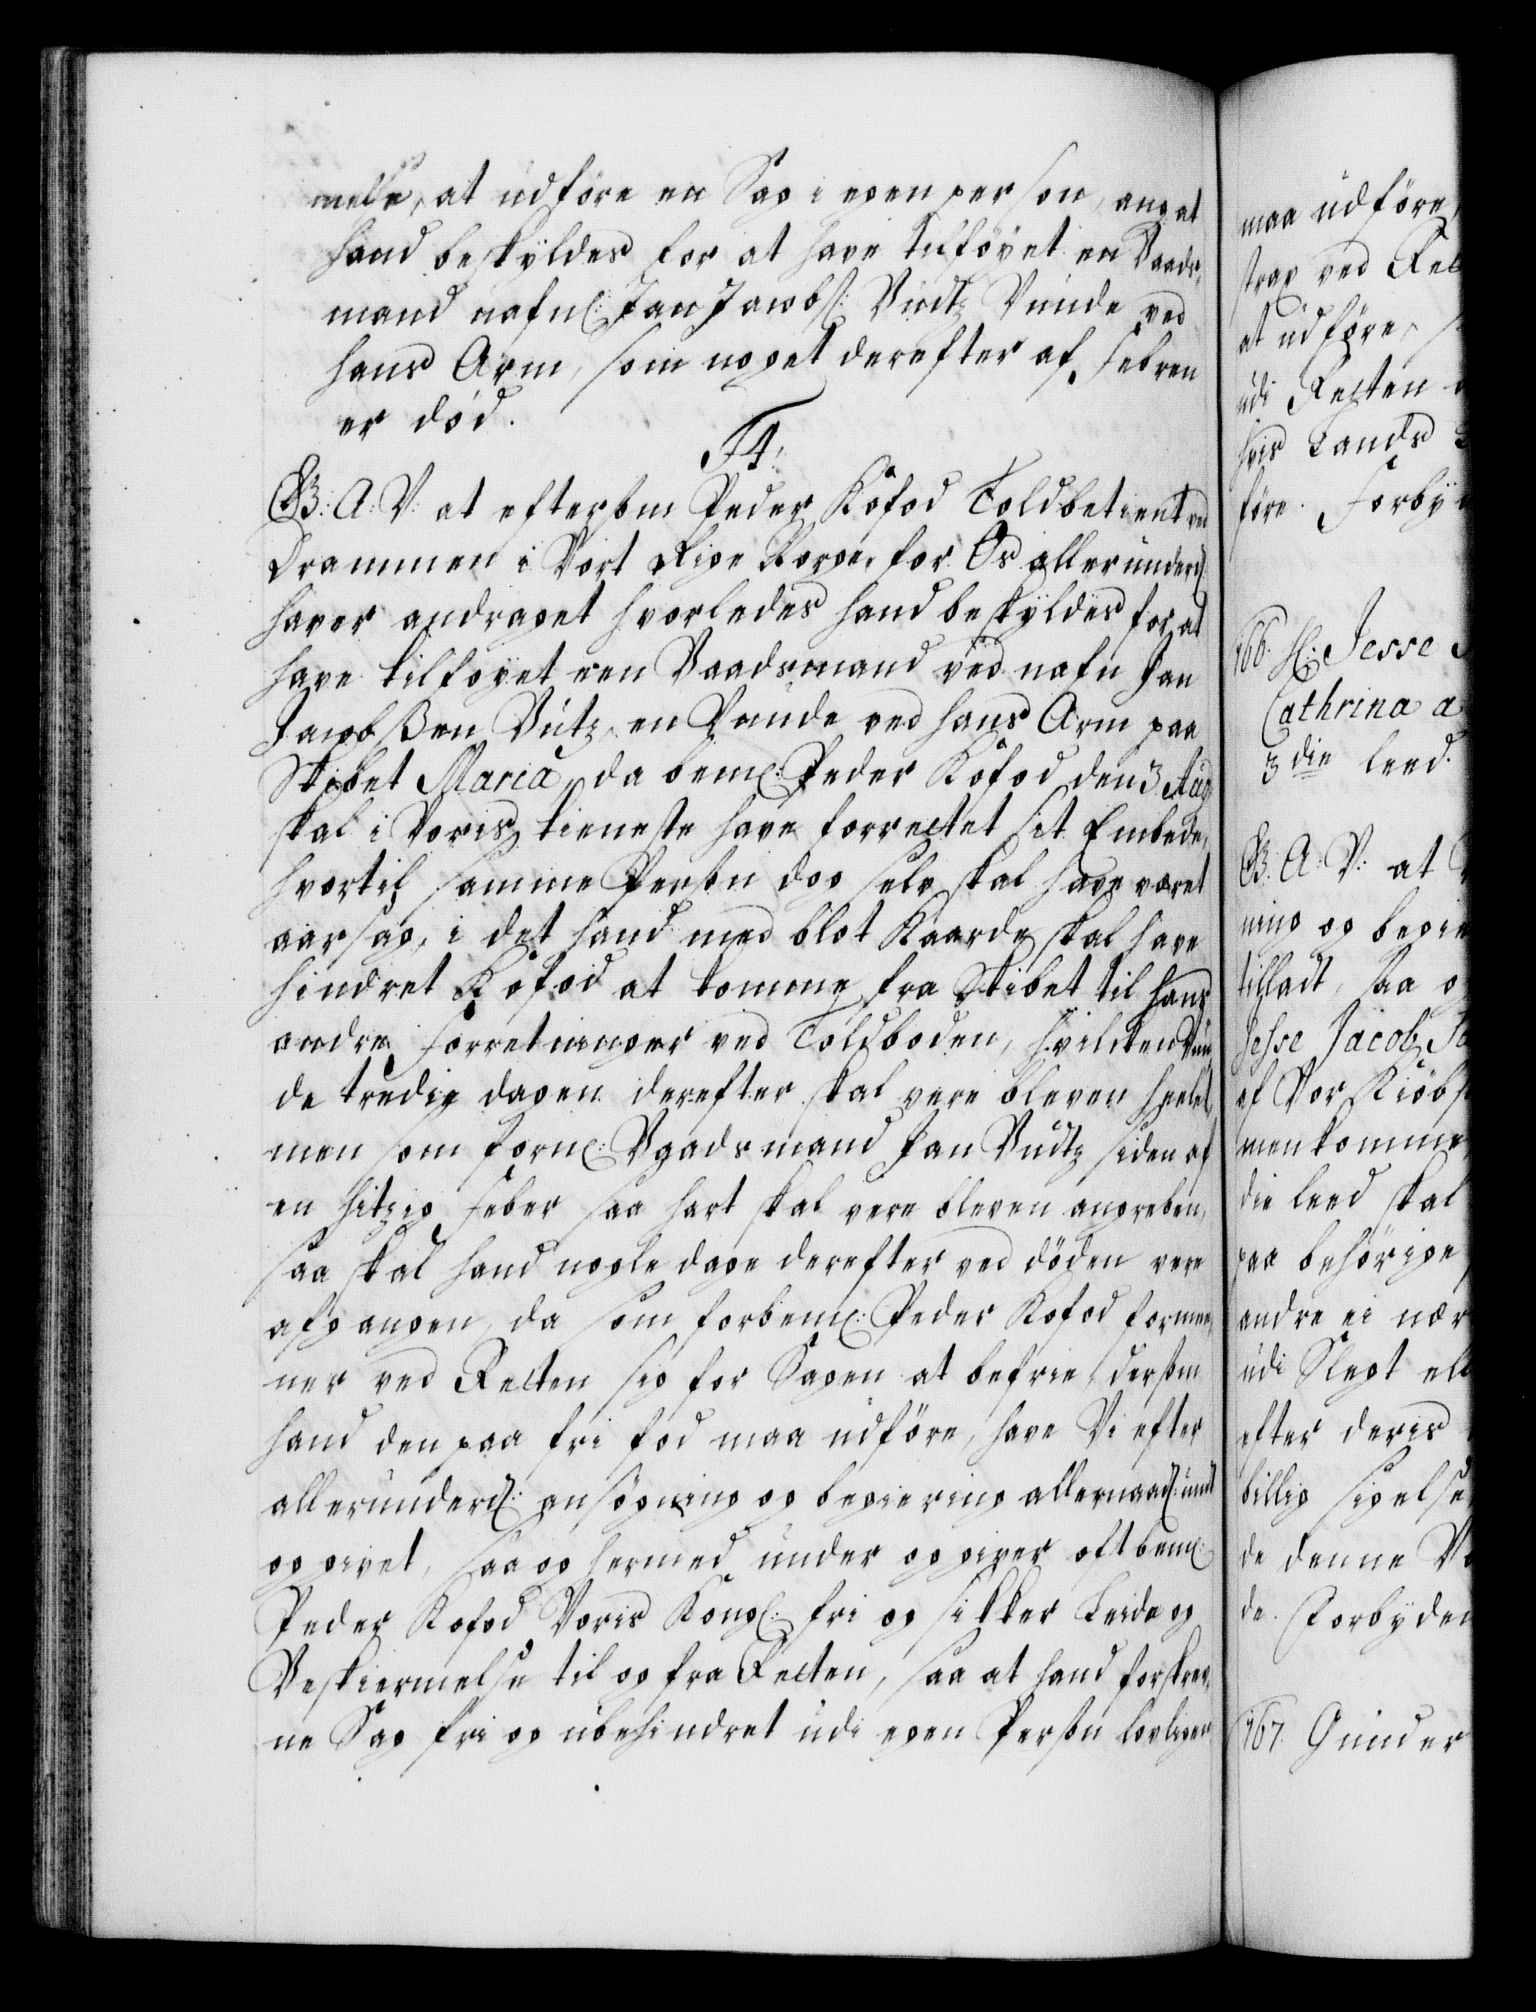 melse, at udföre en Sag i egen person, ang at
hand beskyldes for at have tilföyet en Baads-
mand nafnl: Jan Jacobs: Vudtz Vunde ved
hans Arm, som noget derefter af Febren
er död.
F4:
G: A: V: at eftersom Peder Kofod Toldbetient ved
Drammen i Vort Rige Norge, for Os allerunderd:
haver andraget hvorledes hand beskyldes for at
have tilföyet een Baadsmand ved nafn Jan
Jacobsen Vutz, en Vunde ved hans Arm paa
Skibet Maria, da beml: Peder Kofod den 3 Aug
skal i Voris tieneste have forrettet sit Embede,
hvortil samme Person dog selv skal have været
aarsag, i det hand med blot Kaarde skal have
hindret Kofod at komme fra Skibet til hans
andre Forretninger ved Toldboden, hvilken Vun-
de tredie dagen derefter skal vere bleven heelet,
men som fornl: Baadsmand Jan Vudtz siden af
en hitzig Feber saa hart skal vere bleven angreben,
saa skal hand nogle dage derefter ved döden vere
afgangen, da som forbeml: Peder Kofod formee-
ner ved Retten sig for Sagen at befrie, dersom
hand den paa fri fod maa udföre, have Vi efter
allerunderd: ansögning og begiering allernaad: undt
og givet, saa og hermed under og giver oftbeml:
Peder Kofod Voris Kongl: fri og sikker Leide og
Beskiermelse til og fra Retten, saa at hand forskrev-
ne Sag fri og ubehindret udi egen Person lovligen
maa udföre,
strax ved Ret
at udföre, s
udi Retten
hvis Lands
före. Forbyd
166. H: Jesse
Cathrina a
3die leed.
G: A: V: at
ning og begie
tilladt, saa o
Jesse Jacob
af Vor Kiöbs
menkomme
die leed skal
paa behörige
andre ei nær
udi Slegt ell
efter deris
billig sigelse
de denne Vo
de. Forbyden
167. Gunder